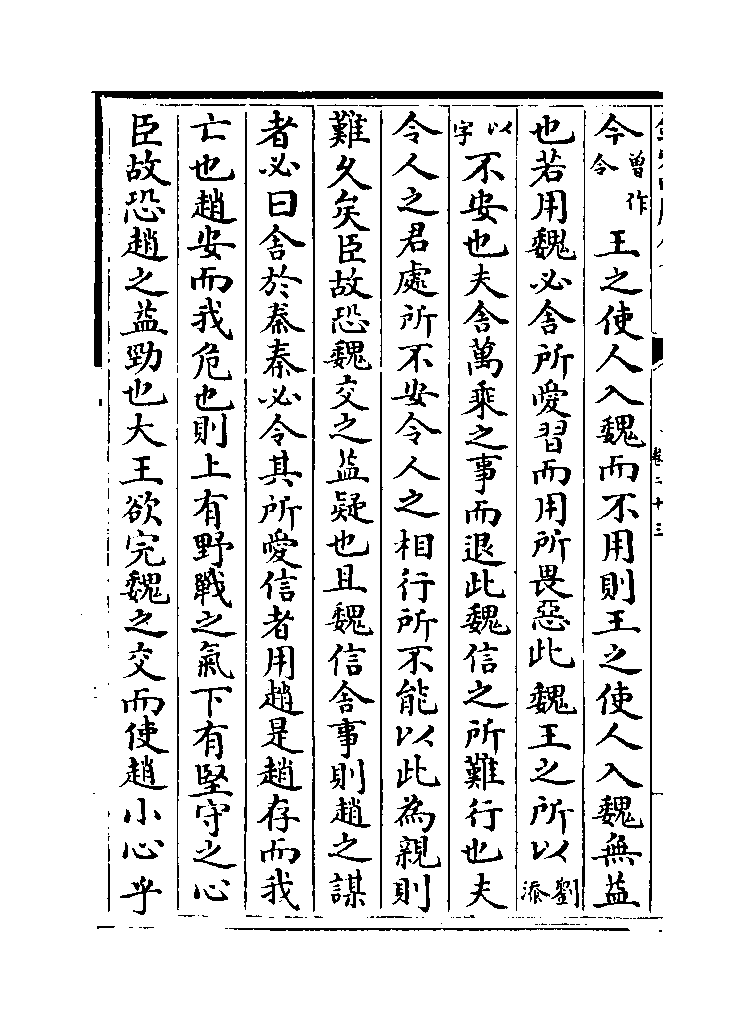 今曾作令王之使人入魏而不用則王之使人入魏無益
也若用魏必舍所愛習而用所畏惡此魏王之所以劉添
以字不安也夫舍萬乘之事而退此魏信之所難行也夫
令人之君處所不安令人之相行所不能以此為親則
難久矣臣故恐魏交之益疑也且魏信舍事則趙之謀
者必曰舍於秦秦必令其所愛信者用趙是趙存而我
亡也趙安而我危也則上有野戰之氣下有堅守之心
臣故恐趙之益勁也大王欲完魏之交而使趙小心乎
卷二十三